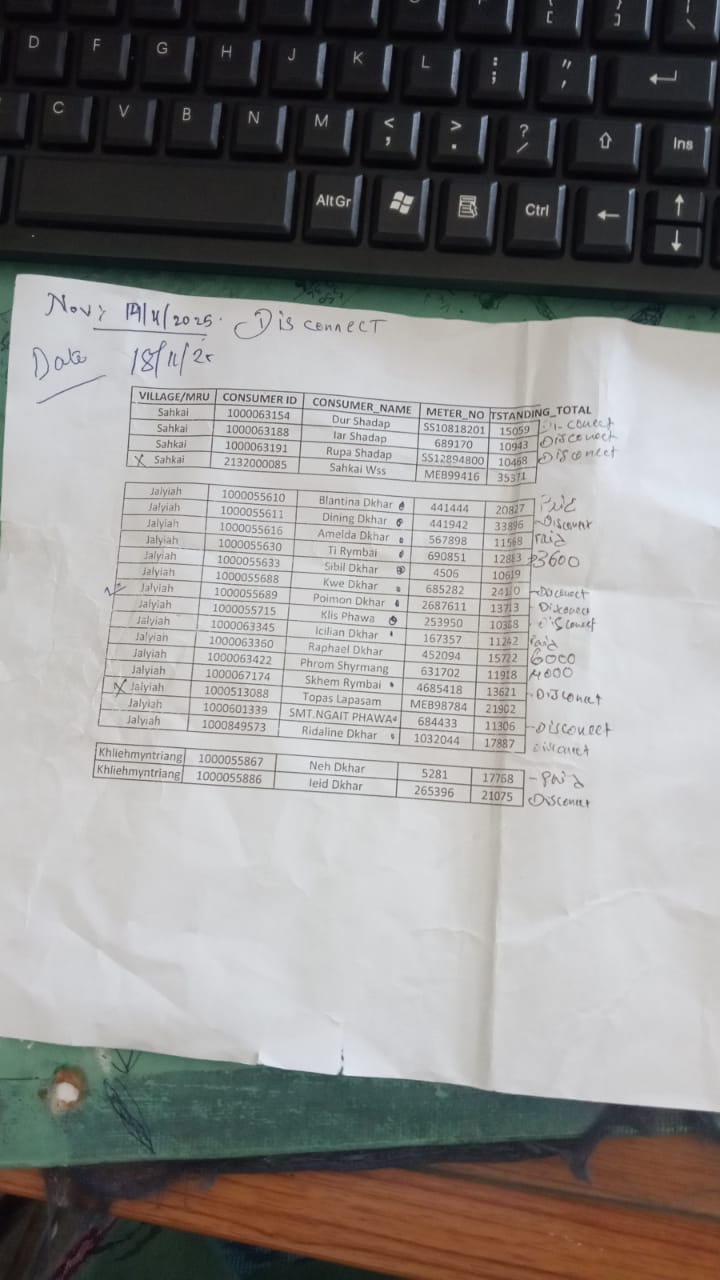 D F G H J K L : ; " ' [ ] \
C V B N M < , > . ? / Ins
Alt Gr Ctrl
Nov; 19/11/2025. Disconnect
Date 18/11/25
VILLAGE/MRU CONSUMER ID CONSUMER_NAME METER_NO TSTANDING_TOTAL
Sahkai 1000063154 Dur Shadap SS10818201 15059
Sahkai 1000063188 Iar Shadap 689170 10943 Disconect
Sahkai 1000063191 Rupa Shadap SS12894800 10468 Disconect
X Sahkai 2132000085 Sahkai Wss MEB99416 35371
Jalyiah 1000055610 Blantina Dkhar 441444 20827 Paid
Jalyiah 1000055611 Dining Dkhar 441942 33896 Disconect
Jalyiah 1000055616 Amelda Dkhar 567898 11568 Paid
Jalyiah 1000055630 Ti Rymbai 690851 12883 3600
Jalyiah 1000055633 Sibil Dkhar 4506 10619
Jalyiah 1000055688 Kwe Dkhar 685282 24110 Disconect
Jalyiah 1000055689 Poimon Dkhar 2687611 13713 Disconect
Jalyiah 1000055715 Klis Phawa 253950 10368 Disconect
Jalyiah 1000063345 Icilian Dkhar 167357 11242 Paid
Jalyiah 1000063360 Raphael Dkhar 452094 15722 6000
Jalyiah 1000063422 Phrom Shyrmang 631702 11918 4000
Jalyiah 1000067174 Skhem Rymbai 4685418 13621 - Disconect
X Jalyiah 1000513088 Topas Lapasam MEB98784 21902
Jalyiah 1000601339 SMT.NGAIT PHAWA 684433 11306 - Disconect
Jalyiah 1000849573 Ridaline Dkhar 1032044 17887 Disconect
Khliehmyntriang 1000055867 Neh Dkhar 5281 17768 - Paid
Khliehmyntriang 1000055886 Ieid Dkhar 265396 21075 Disconect